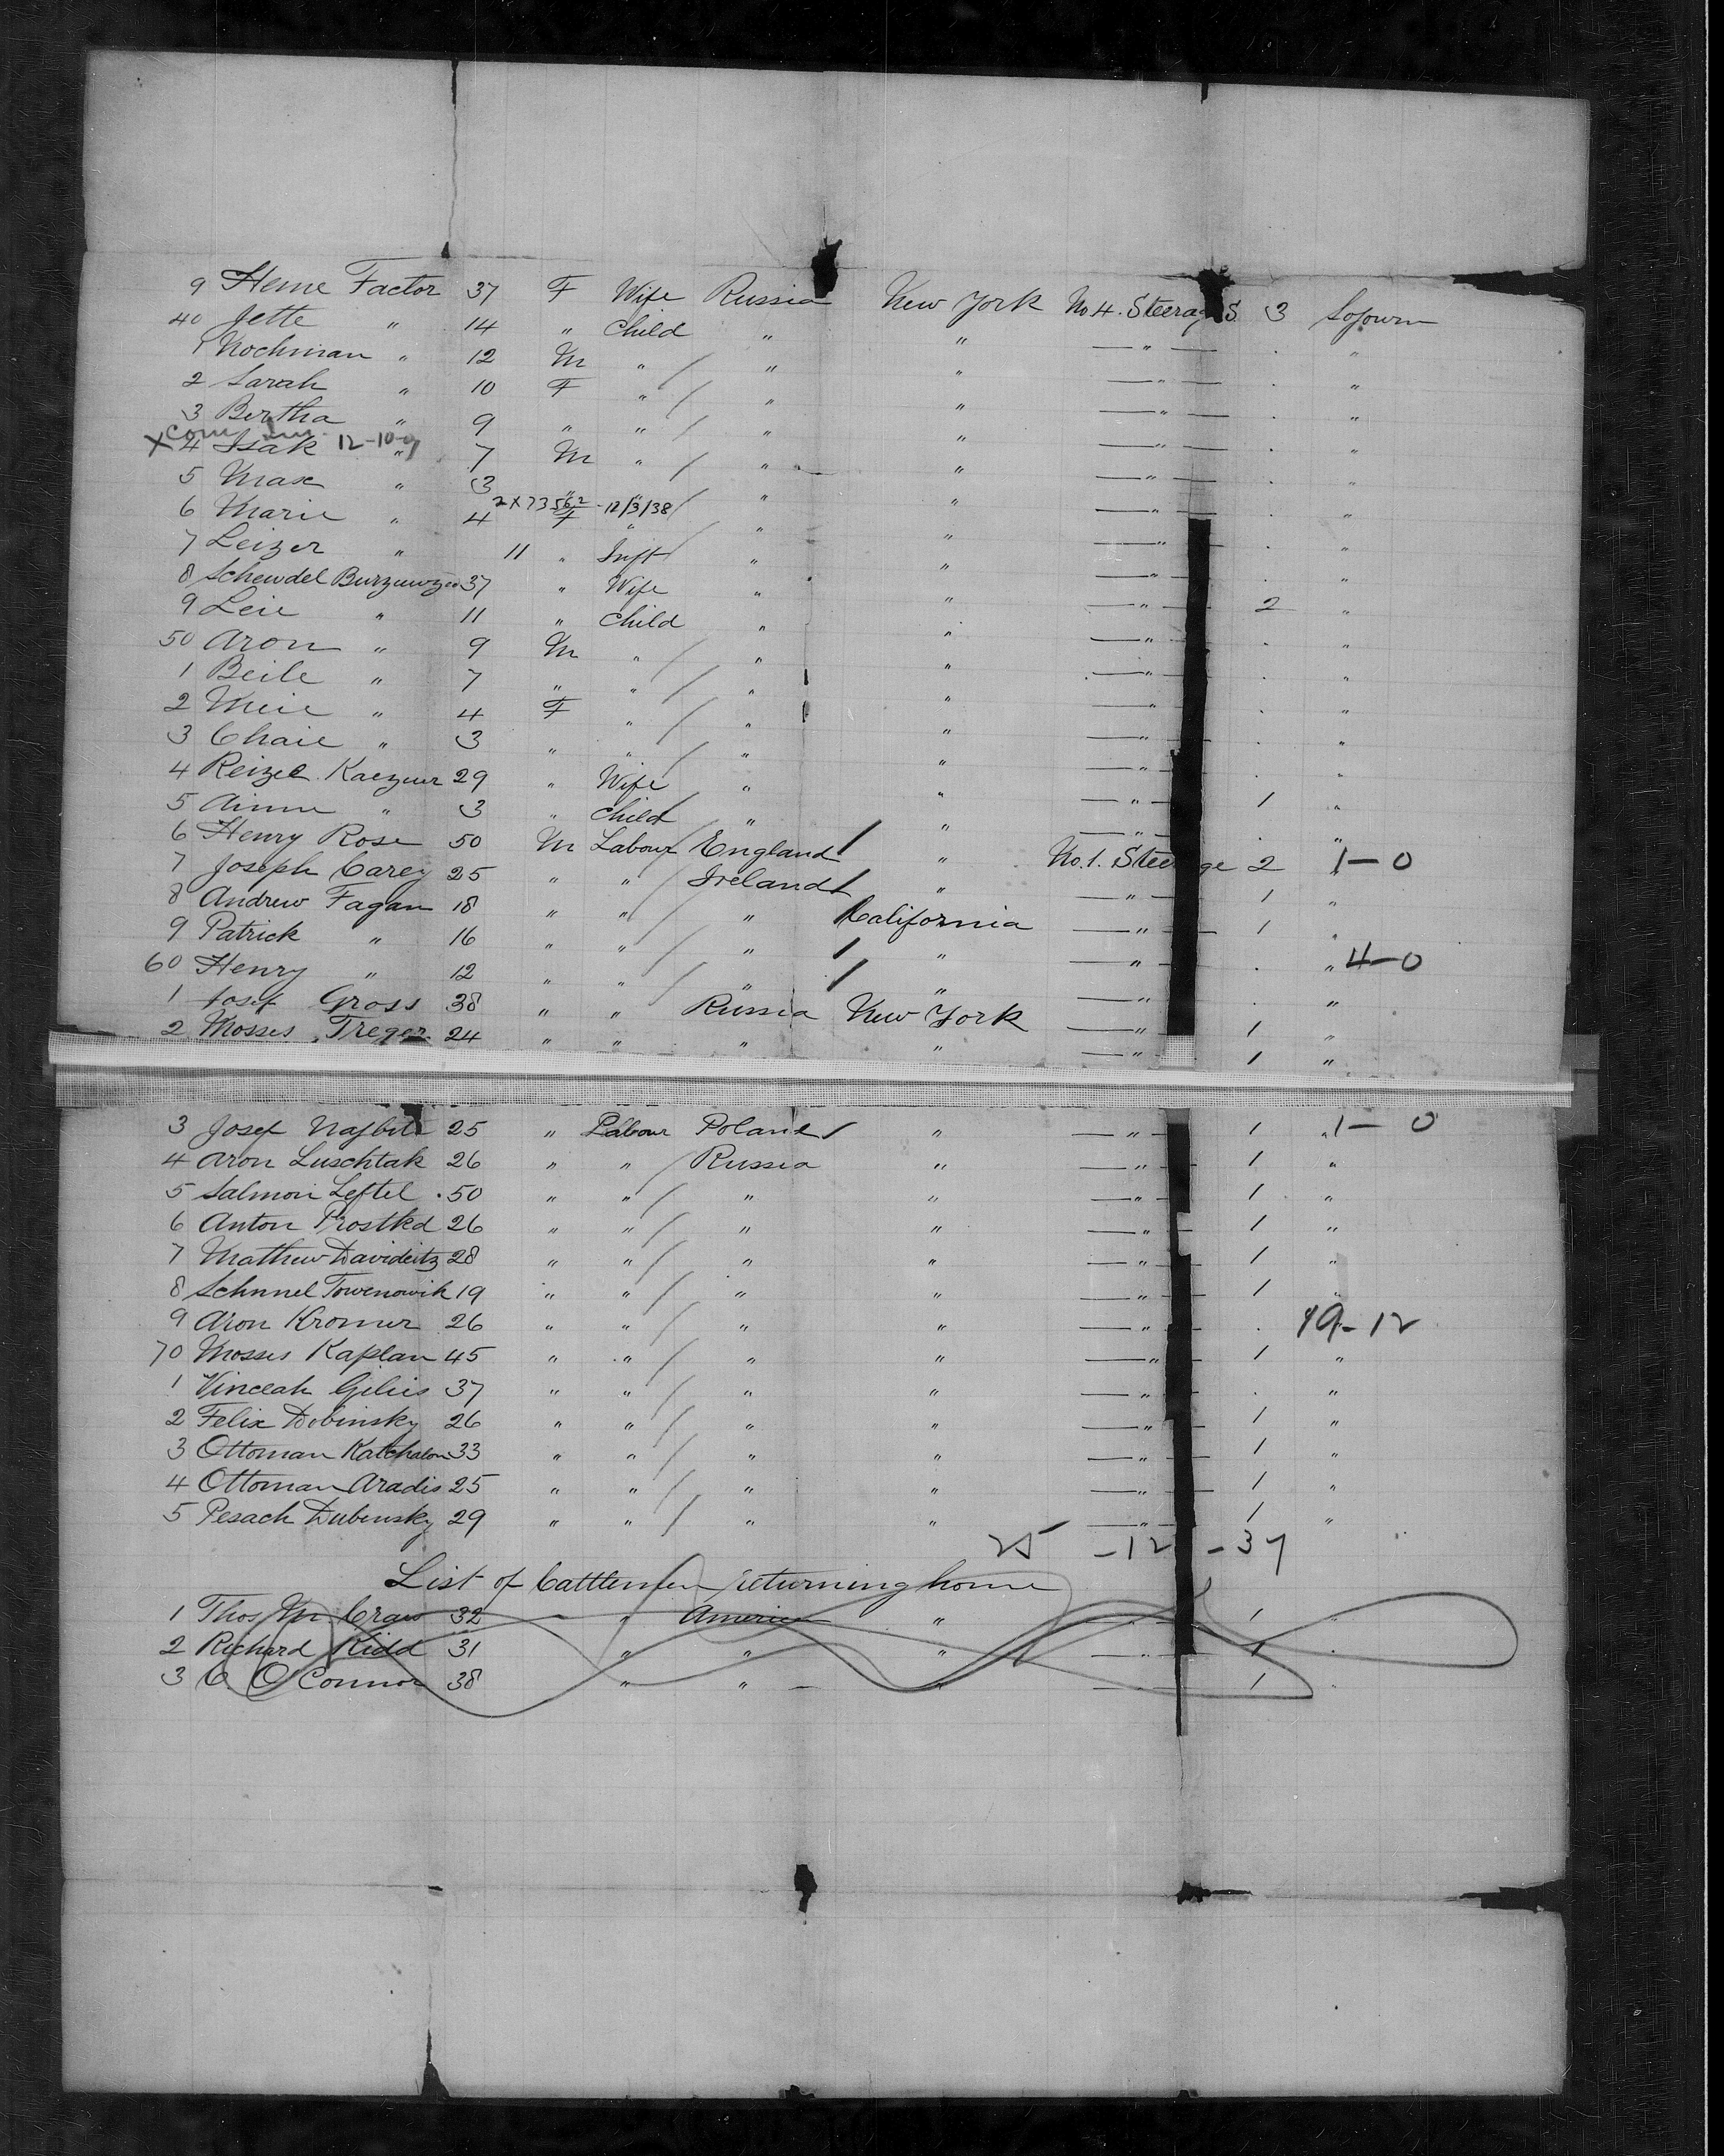 9 Heme Factor 37 F Wife Russia New York No 4. Steerag S. 3 Sojourn
40 Jette " 14 " Child " " — " — . "
1 Nochman " 12 M " / " " — " — . "
2 Sarah " 10 F " / " " — " — . "
3 Bertha " 9 " " / " " — " — . "
12-10-9
X 4 Isak " 7 M " / " " — " — . "
5 Max " 3 " " / " " — " — . "
2X73562 - 12/3/38
6 Marie " 4 F " / " " — " — . "
7 Leizer " 11 " Inft " " — " — . "
8 Schewdel 37 " Wife " " — " — 2 "
9 Leie " 11 " Child " " — " — . "
50 Aron " 9 M " / " " — " — . "
1 Beile " 7 " " / " " — " — . "
2 Meie " 4 F " / " " — " — . "
3 Chaie " 3 " " / " " — " — . "
4 Reizel 29 " Wife " " — " — 1 "
5 " 3 " Child " " — " — . "
6 Henry Rose 50 M Labour / England / " No. 1. Steerage 2 " 1-0
7 Joseph Carey 25 " " / Ireland / " — " — 1 "
8 Andrew Fagan 18 " " / " California — " — 1 "
9 Patrick " 16 " " / " / " — " — . " 4-0
60 Henry " 12 " " / " / " — " — . "
1 Josef Gross 38 " " Russia New York — " — 1 "
2 Mosses Treger 24 " " " " — " — 1 "
3 Josef 25 " Labour Poland / " — " — 1 " 1-0
4 Aron Luschtak 26 " " / Russia " — " — 1 "
5 Salmon Leftel 50 " " / " " — " — 1 "
6 Anton 26 " " / " " — " — 1 "
7 Mathew 28 " " / " " — " — 1 "
8 19 " " / " " — " — 1 "
9 Aron Kromer 26 " " / " " — " — . 19-12
70 Mosses Kaplan 45 " " / " " — " — 1 "
1 37 " " / " " — " — . "
2 Felix Dobinsky 26 " " / " " — " — 1 "
3 Ottoman 33 " " / " " — " — 1 "
4 Ottoman Aradis 25 " " / " " — " — 1 "
5 Pesach Dubinsky 29 " " / " " — " — 1 "
25 - 12 - 37
List of Cattlemen returning home
1 Thos Mc Craw 32 " America " " 1 "
2 Richard Kidd 31 " " " — " — 1 "
3 O'Connor 38 " " — " — " — 1 "